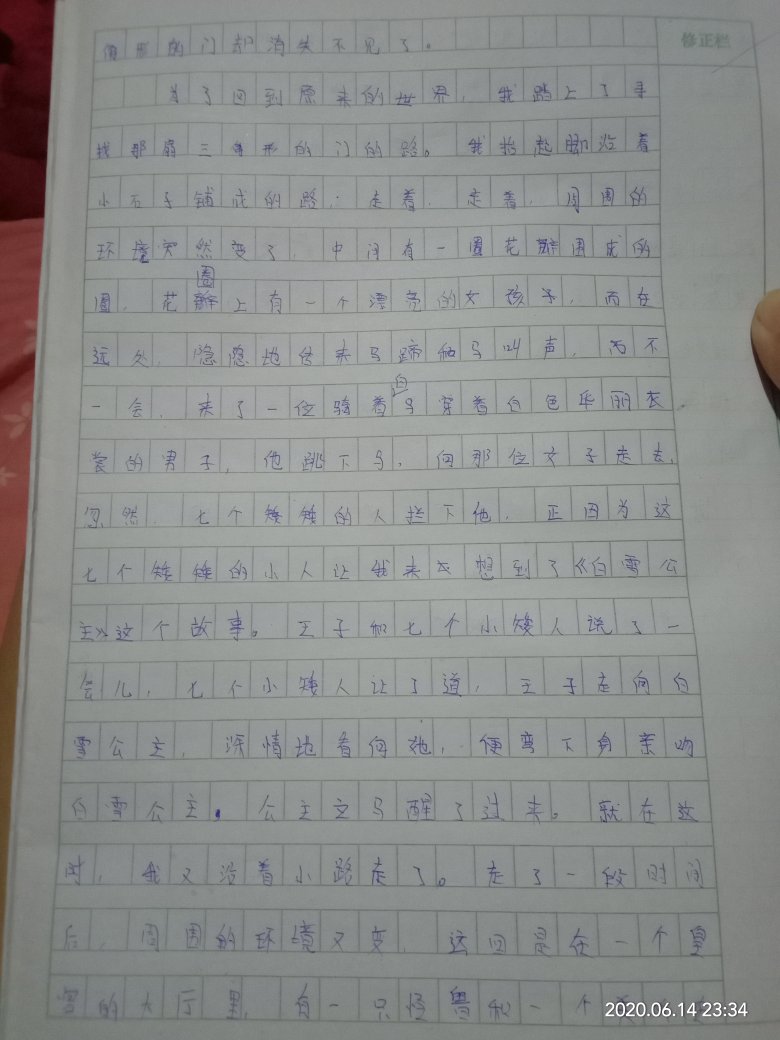 修正栏
形的门都消失不见了。
为了回到原来的世界，我踏上了寻
找那扇三角形的门的路。我抬起脚沿着
小石子铺成的路，走着，走着，周围的
环境突然变了，中间有一圈花瓣围成的
圈，花瓣圈上有一个漂亮的女孩子，而在
远处，隐隐地传来马蹄和马叫声，而不
一会，来了一位骑着白马穿着白色华丽衣
裳的男子，他跳下马，向那位女子走去，
忽然，七个矮矮的人拦下他，正因为这
七个矮矮的小人让我来想到了《白雪公
主》这个故事。王子和七个小矮人说了一
会儿，七个小矮人让了道，王子走向白
雪公主，深情地看向她，便弯下身亲吻
白雪公主，公主立马醒了过来。就在这
时，我又沿着小路走了。走了一段时间
后，周围的环境又变，这回是在一个皇
宫的大厅里，有一只怪兽和一个
2020.06.14 23:34